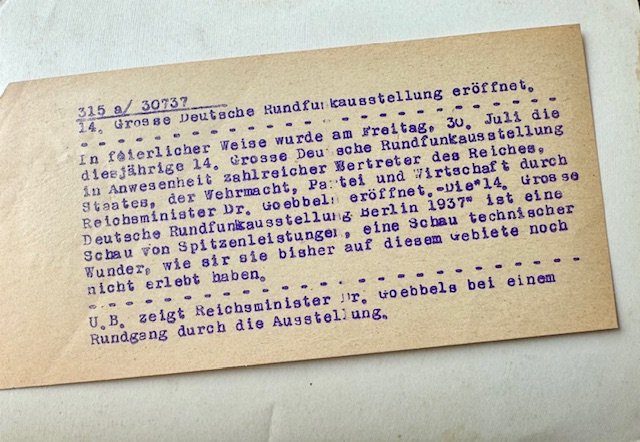 315 a/ 30737
14. Grosse Deutsche Rundfunkausstellung eröffnet.
In feierlicher Weise wurde am Freitag, 30. Juli die
diesjährige 14. Grosse Deutsche Rundfunkausstellung
in Anwesenheit zahlreicher Vertreter des Reiches,
Staates, der Wehrmacht, Partei und Wirtschaft durch
Reichsminister Dr. Goebbels eröffnet.-Die"14. Grosse
Deutsche Rundfunkausstellung Berlin 1937" ist eine
Schau von Spitzenleistungen, eine Schau technischer
Wunder, wie sir sie bisher auf diesem Gebiete noch
nicht erlebt haben.
U.B. zeigt Reichsminister Dr. Goebbels bei einem
Rundgang durch die Ausstellung.